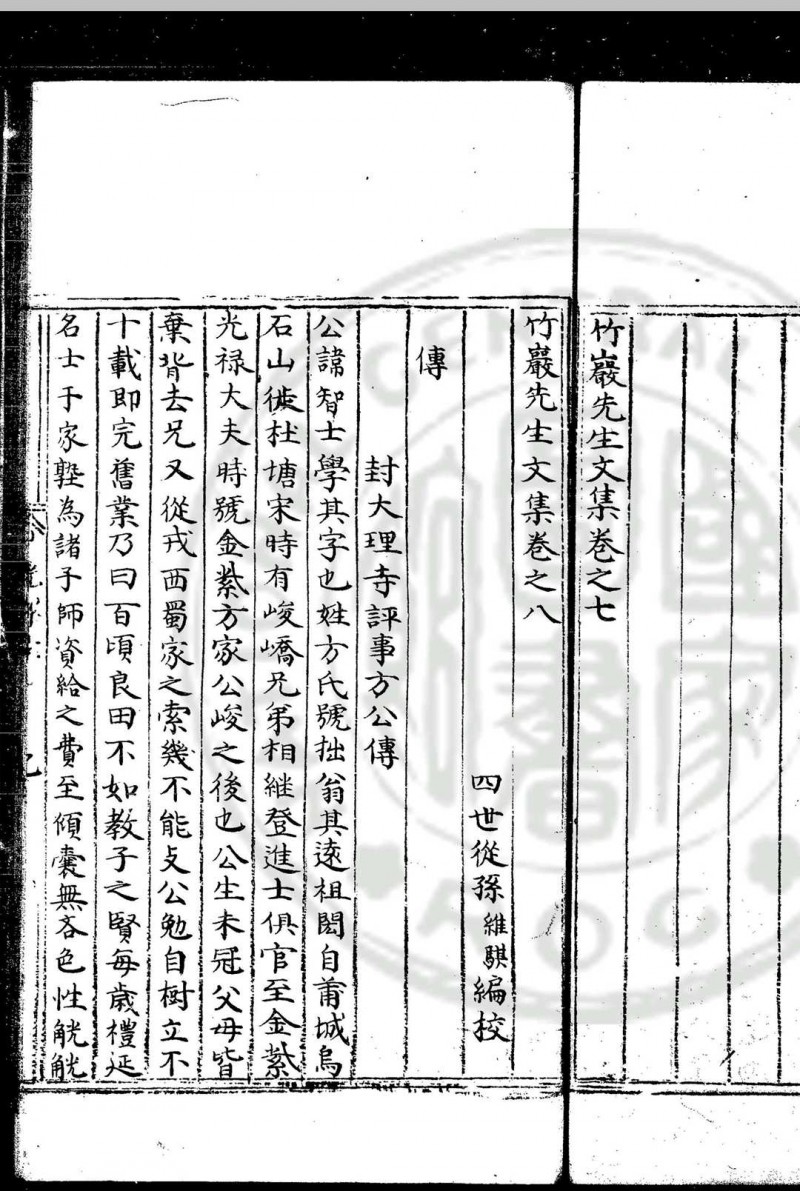 竹巖先生文集卷之七
竹巖先生文集卷之八
四世從孫維騏編校
傳
封大理寺評事方公傳
公諱智士學其字也姓方氏號拙翁其遠祖閎自莆城烏
石山徙杜塘宋時有峻嶠兄弟相繼登進士俱官至金紫
光祿大夫時號金紫方家公峻之後也公生未冠父母皆
棄背去兄又從戎西蜀家之索幾不能支公勉自樹立不
十載即完舊業乃曰百頃良田不如教子之賢每歲禮延
名士于家塾為諸子師資給之費至傾囊無吝色性觥觥
CENTRAL
ROC
國家